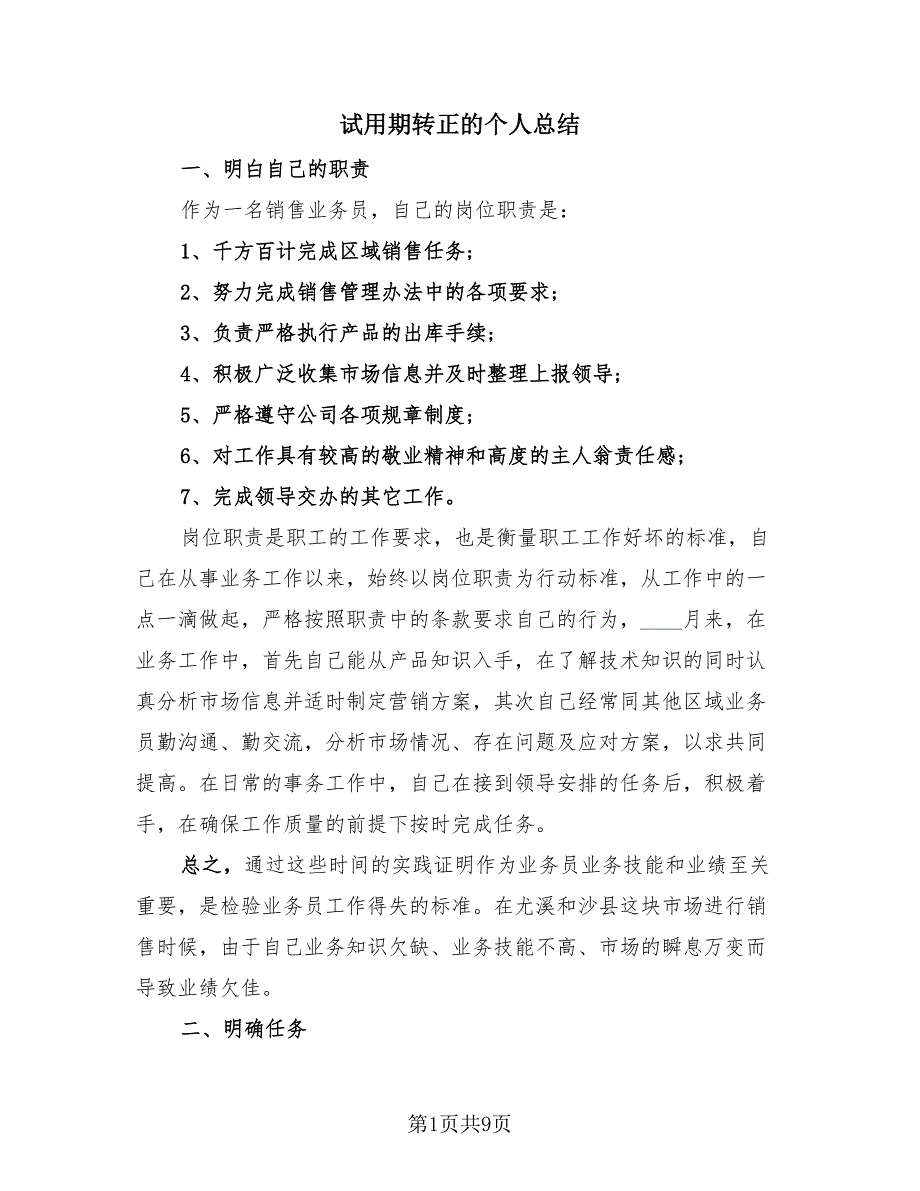 试用期转正的个人总结
一、明白自己的职责
作为一名销售业务员，自己的岗位职责是：
1、千方百计完成区域销售任务；
2、努力完成销售管理办法中的各项要求；
3、负责严格执行产品的出库手续；
4、积极广泛收集市场信息并及时整理上报领导；
5、严格遵守公司各项规章制度；
6、对工作具有较高的敬业精神和高度的主人翁责任感；
7、完成领导交办的其它工作。
岗位职责是职工的工作要求，也是衡量职工工作好坏的标准，自
己在从事业务工作以来，始终以岗位职责为行动标准，从工作中的一
点一滴做起，严格按照职责中的条款要求自己的行为，____月来，在
业务工作中，首先自己能从产品知识入手，在了解技术知识的同时认
真分析市场信息并适时制定营销方案，其次自己经常同其他区域业务
员勤沟通、勤交流，分析市场情况、存在问题及应对方案，以求共同
提高。在日常的事务工作中，自己在接到领导安排的任务后，积极着
手，在确保工作质量的前提下按时完成任务。
总之，通过这些时间的实践证明作为业务员业务技能和业绩至关
重要，是检验业务员工作得失的标准。在尤溪和沙县这块市场进行销
售时候，由于自己业务知识欠缺、业务技能不高、市场的瞬息万变而
导致业绩欠佳。
二、明确任务
第1页共9页